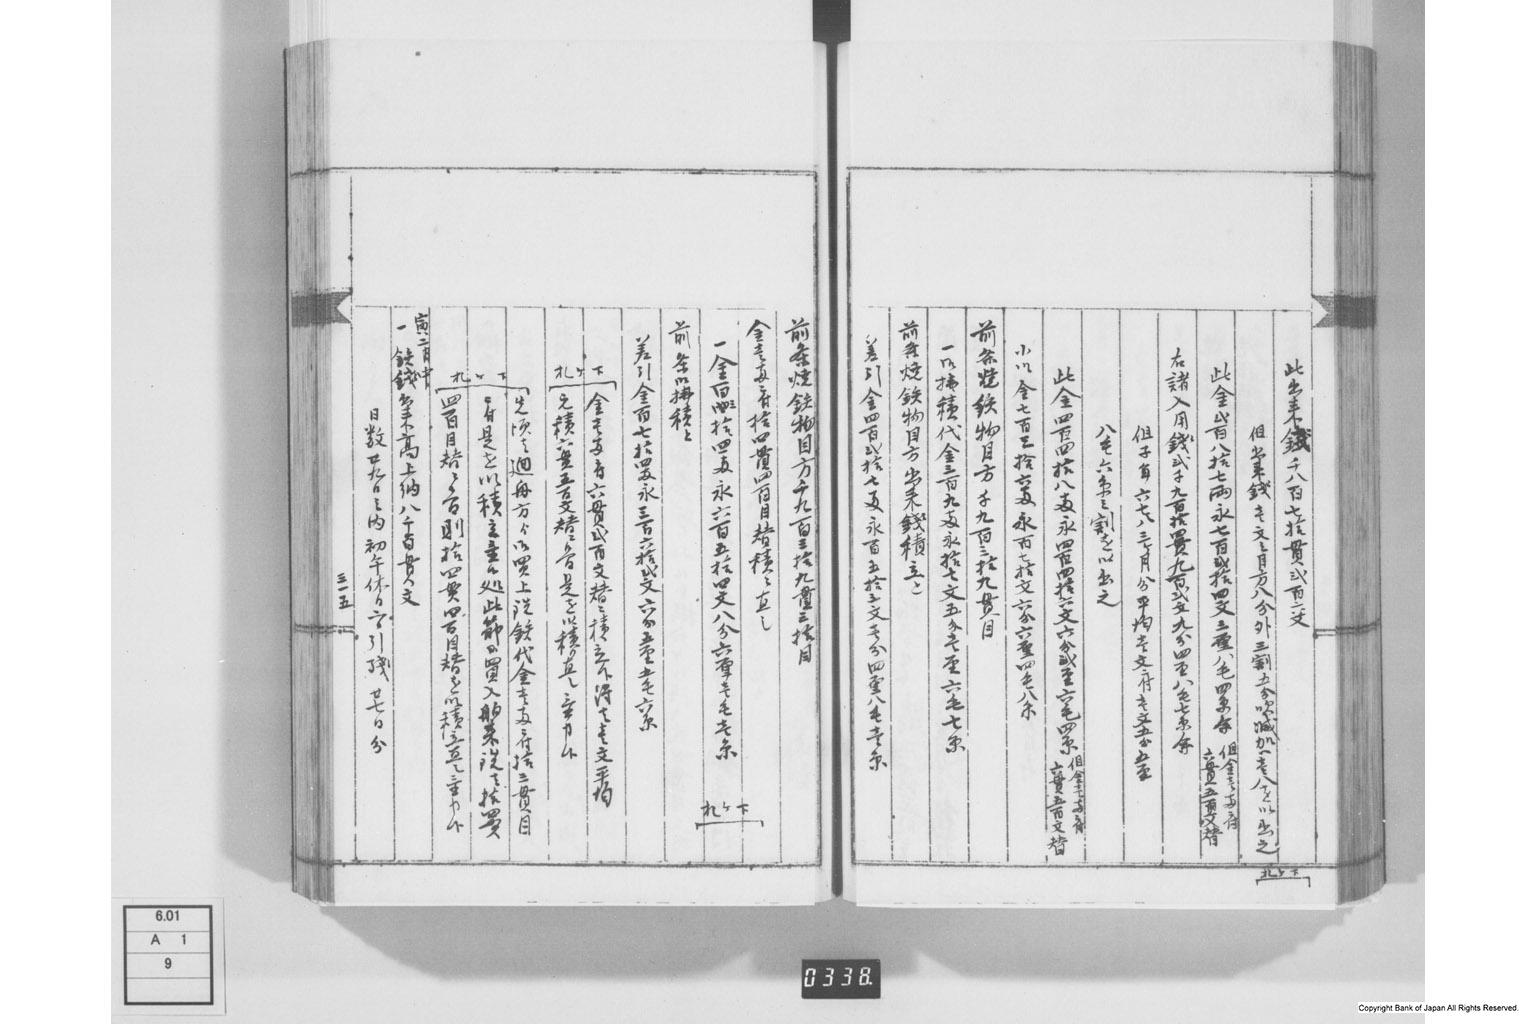 此出来銭千八百七拾貫弐百二文
但出来銭壱文之目方八分外三割五分吹減加壱八を以出之
下ケ札
此金弐百八拾七両永七百弐拾四文三厘八毛四糸余
但金壱両ニ付
六貫五百文替
右諸入用銭弐千九百拾四貫九百弐文九分四厘八毛七糸余
但子年六七八三ヶ月分平均壱文ニ付壱文五分五厘
八毛六糸之割を以出之
此金四百四拾八両永四百四拾六文六分弐厘六毛四糸
但金壱両ニ付
六貫五百文替
小以金七百三拾六両永百七拾文六分六厘四毛八糸
前条焼鉄物目方千九百三拾九貫目
一御拂積代金三百九両永拾七文五分壱厘六毛七糸
前条焼鉄物目方出来銭積立と
差引金四百弐拾七両永百五拾三文壱分四厘八毛壱糸
前条焼鉄物目方千九百三拾九貫三拾目
金壱両ニ付拾四貫四百目替積之直し
一金百三拾四両永六百五拾四文八分六厘壱毛壱糸
下ケ札
前条御拂積と
差引金百七拾四両永三百六拾弐文六分五厘五毛六糸
下ケ札
金壱両ニ付六貫弐百文替之積立候得共壱文平均
元積六貫五百文替ニ付是を以積り直し
下ケ札
先頃之通毎方ゟ御買上銑鉄代金壱両ニ付拾三貫目
四百目替ニ付則拾四貫四百目替を以積立直し
寅二月中
一鉄銭出来高上納八千百貫文
日数廿九日之内初午休日引残廿七日分
三一五
6.01
A 1
9
0338.
Copyright Bank of Japan All Rights Reserved.